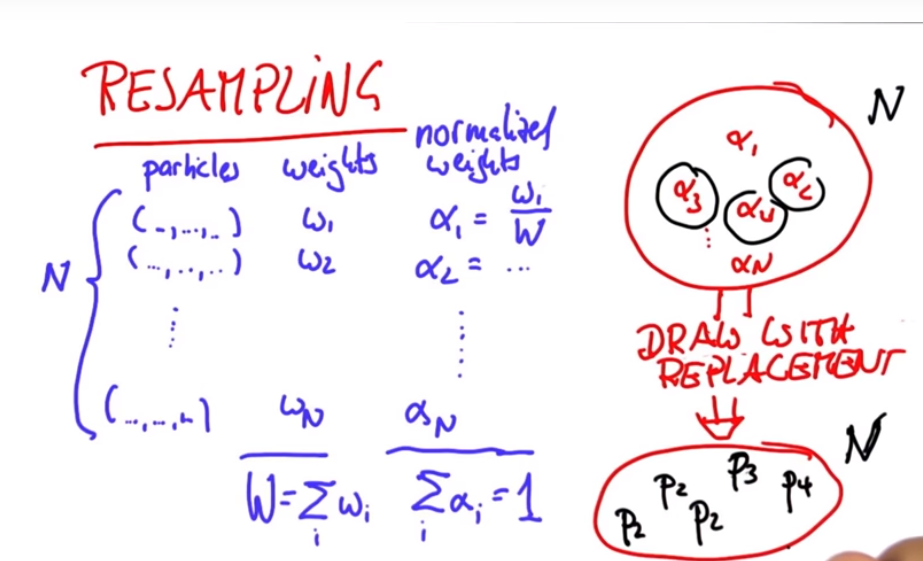 RESAMPLING
particles weights normalized weights
N
(..,...,..) ω₁ α₁ = ω₁/W
(...,...,..) ω₂ α₂ = ...
⋮ ⋮
(...,...,..) ω_N α_N
W=∑ᵢωᵢ ∑ᵢαᵢ=1
N
α₁
α₃ α₄ α₂
⋮
α_N
DRAW WITH
REPLACEMENT
N
p₂ p₃ p₄
p₂ p₂